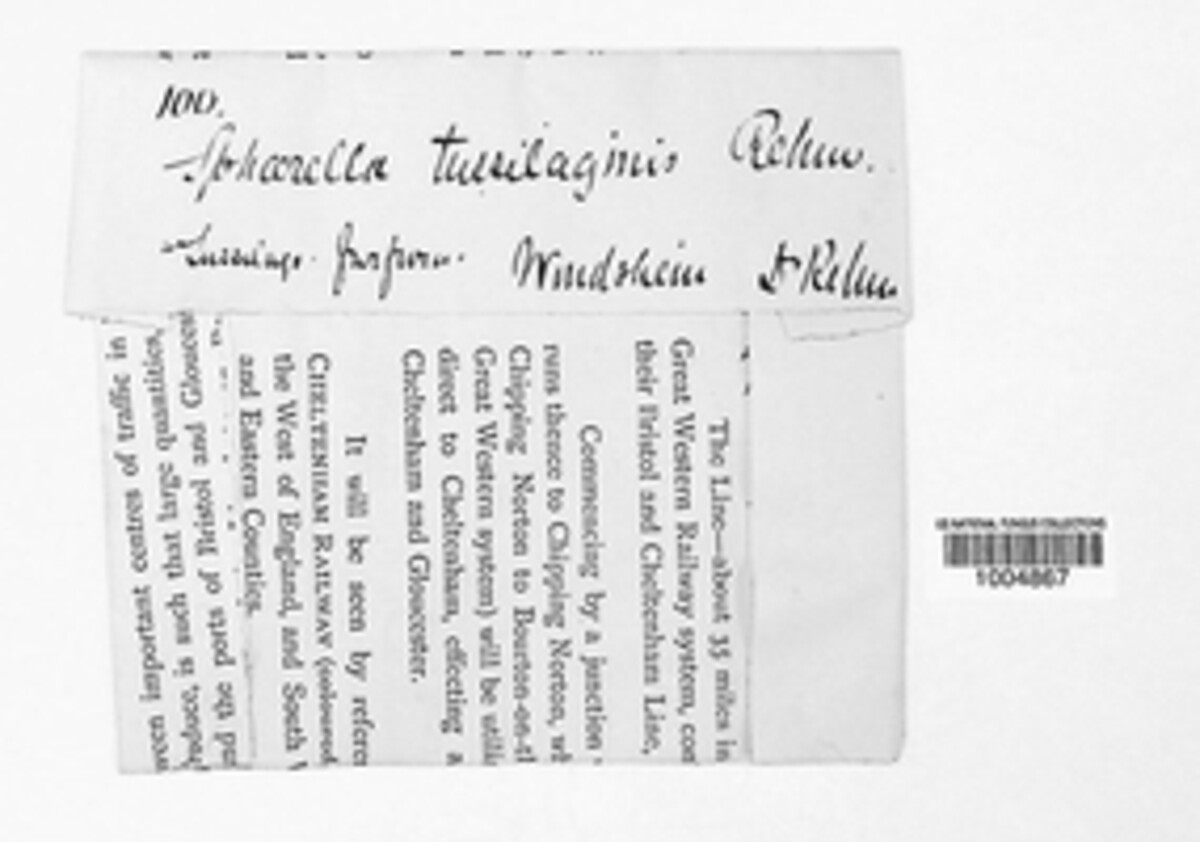 100.
Sphaerella tussilaginis Rehm.
Windsheim Dr Rehm
The Line—about 35 miles in
Great Western Railway system, con
their Bristol and Cheltenham Line,
Commencing by a junction
runs thence to Chipping Norton, wh
Chipping Norton to Bourton-on-th
Great Western system) will be utili
direct to Cheltenham, effecting a
Cheltenham and Gloucester.
It will be seen by refere
CHELTENHAM RAILWAY (coloured
the West of England, and South W
and Eastern Counties.
ween important centres of traffic in
produce, is such that large quantities,
nd the ports of Bristol and Gloucester
US NATIONAL FUNGUS COLLECTIONS
1004867